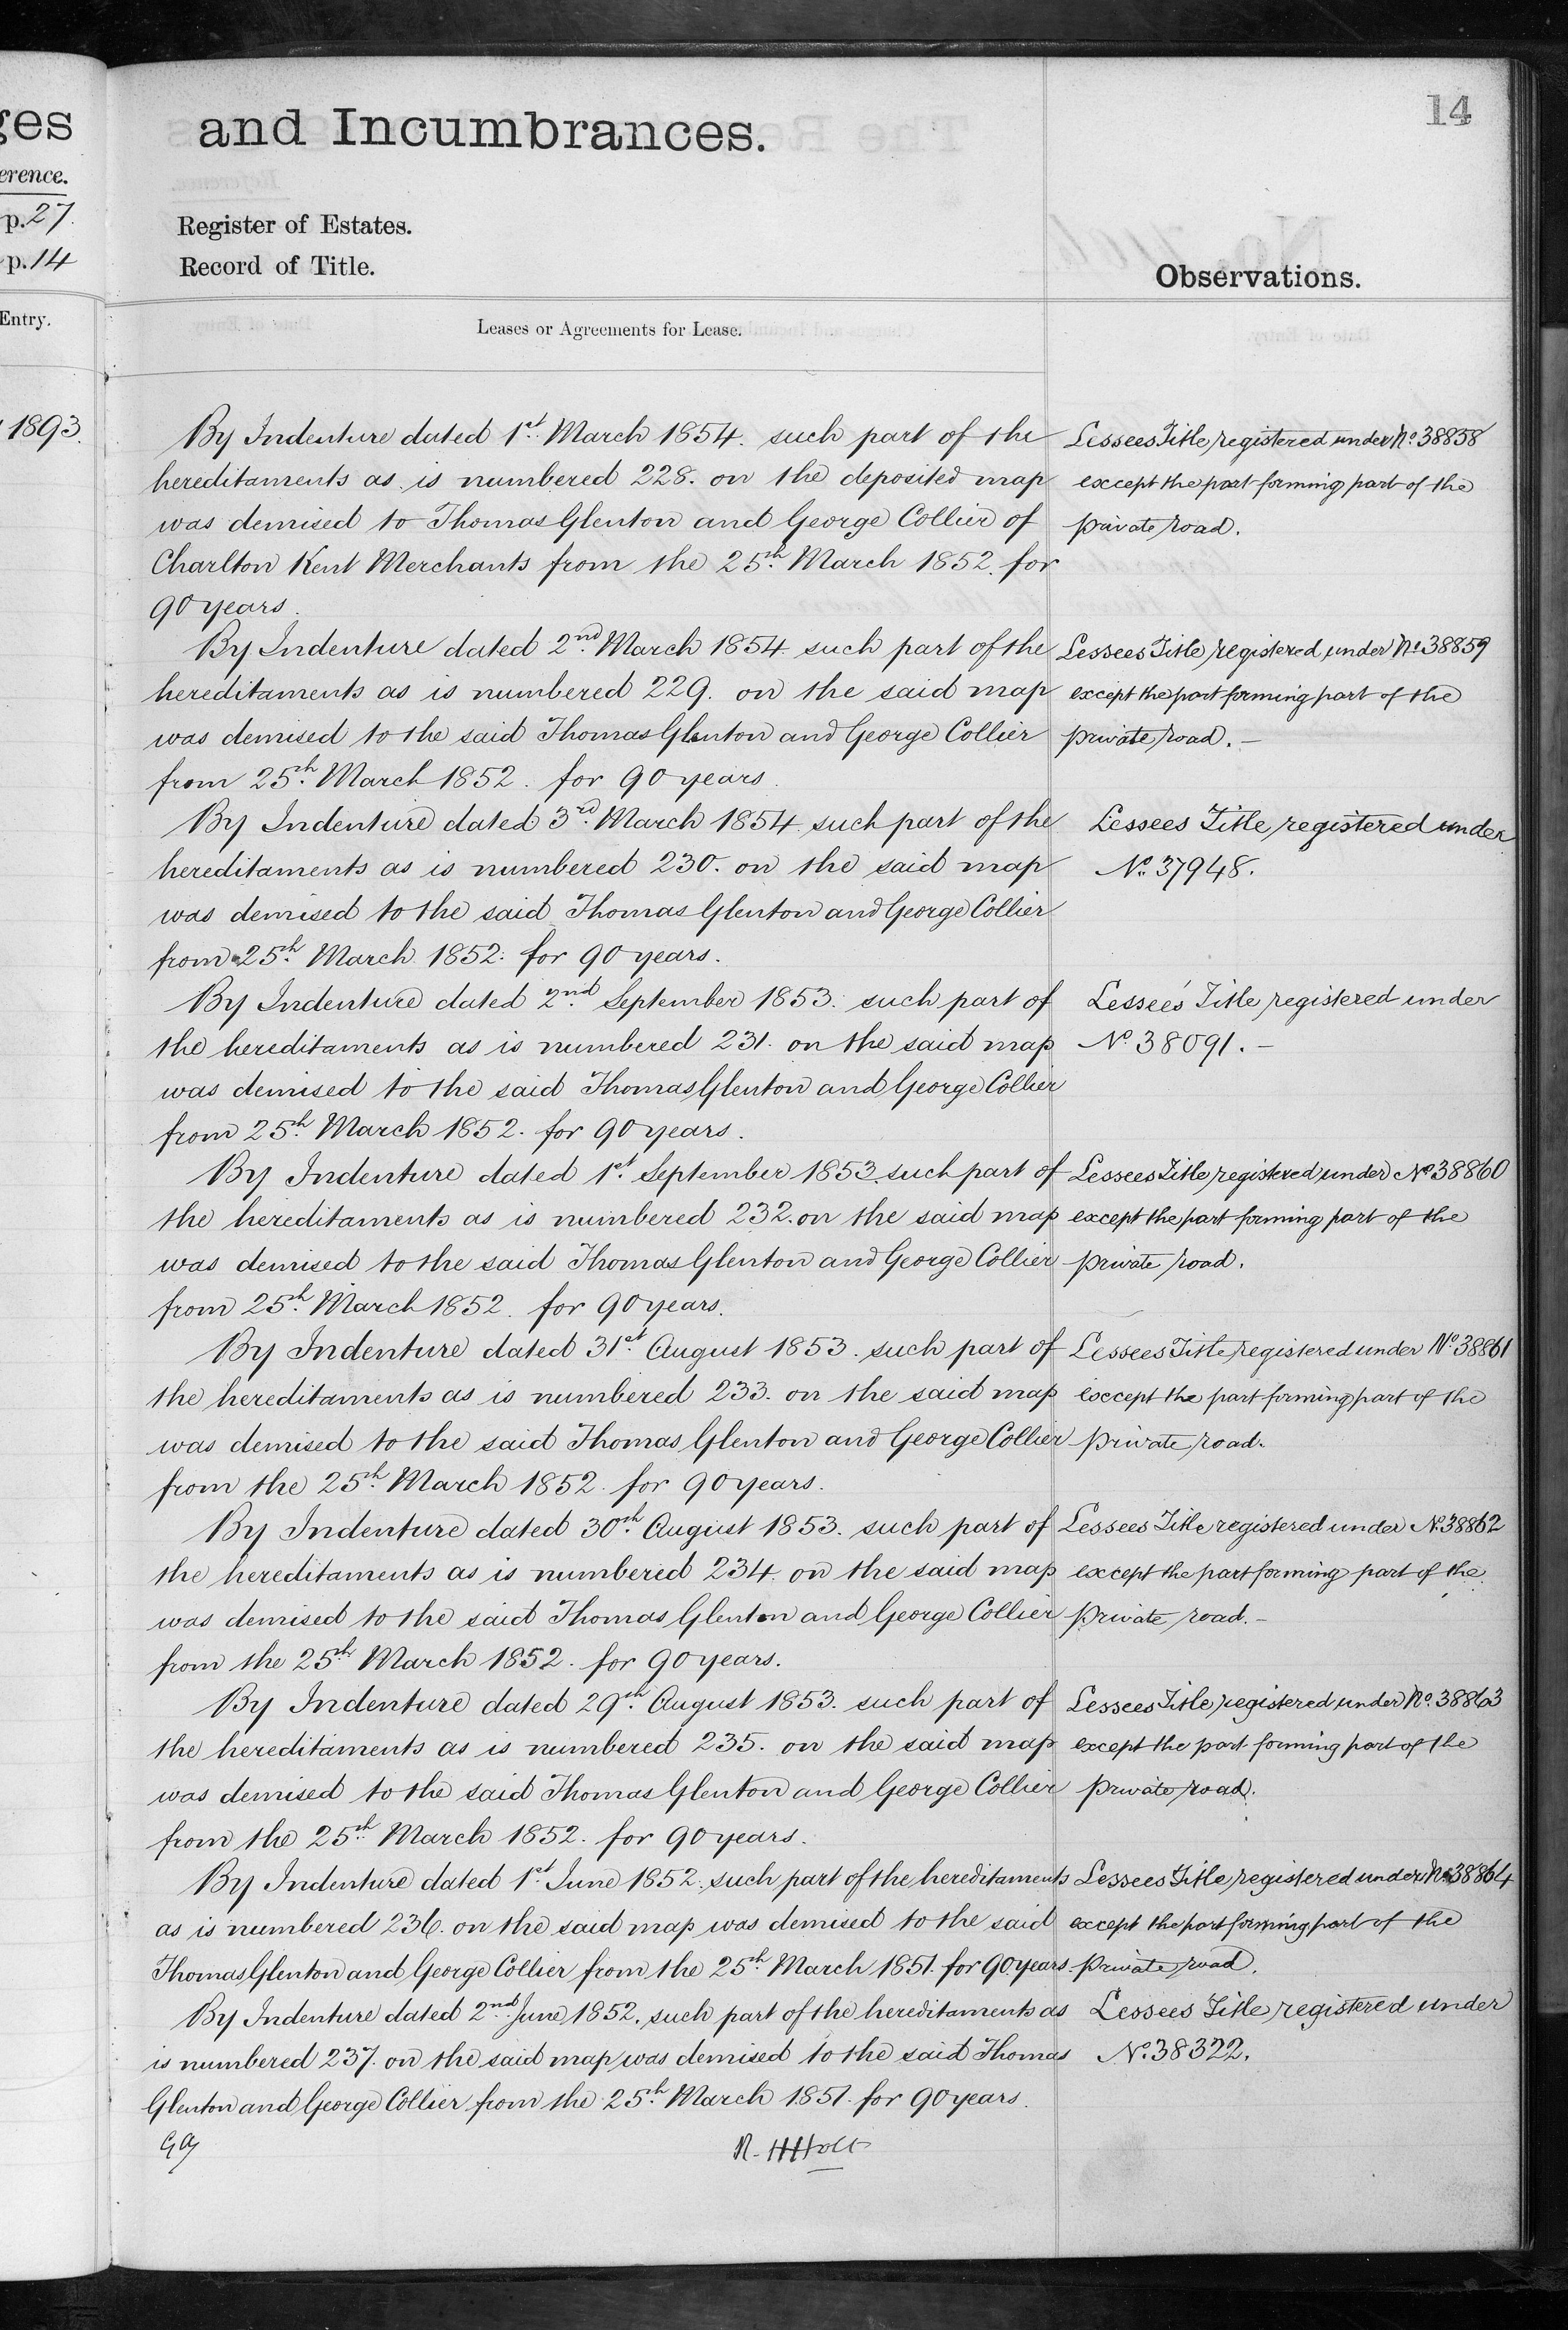 ges
and Incumbrances.
14
erence.
p. 27.
Register of Estates.
p. 14
Record of Title.
Observations.
Entry.
Leases or Agreements for Lease.
1893.
By Indenture dated 1st March 1854. such part of the
hereditaments as is numbered 228. on the deposited map
was demised to Thomas Glenton and George Collier of
Charlton Kent Merchants from the 25th March 1852. for
90 years.
Lessees Title registered under No. 38858
except the part forming part of the
private road.
By Indenture dated 2nd March 1854 such part of the
hereditaments as is numbered 229. on the said map
was demised to the said Thomas Glenton and George Collier
from 25th March 1852. for 90 years.
Lessees Title registered under No. 38859
except the part forming part of the
private road. –
By Indenture dated 3rd March 1854 such part of the
hereditaments as is numbered 230. on the said map
was demised to the said Thomas Glenton and George Collier
from 25th March 1852. for 90 years.
Lessees Title registered under
No. 37948.
By Indenture dated 2nd September 1853. such part of
the hereditaments as is numbered 231. on the said map
was demised to the said Thomas Glenton and George Collier
from 25th March 1852. for 90 years.
Lessee's Title registered under
No. 38091. –
By Indenture dated 1st September 1853. such part of
the hereditaments as is numbered 232. on the said map
was demised to the said Thomas Glenton and George Collier
from 25th March 1852. for 90 years.
Lessees Title registered under No. 38860
except the part forming part of the
private road.
By Indenture dated 31st August 1853. such part of
the hereditaments as is numbered 233. on the said map
was demised to the said Thomas Glenton and George Collier
from the 25th March 1852. for 90 years.
Lessees Title registered under No. 38861
except the part forming part of the
private road.
By Indenture dated 30th August 1853. such part of
the hereditaments as is numbered 234. on the said map
was demised to the said Thomas Glenton and George Collier
from the 25th March 1852. for 90 years.
Lessees Title registered under No. 38862
except the part forming part of the
private road. –
By Indenture dated 29th August 1853. such part of
the hereditaments as is numbered 235. on the said map
was demised to the said Thomas Glenton and George Collier
from the 25th March 1852. for 90 years.
Lessees Title registered under No. 38863
except the part forming part of the
private road.
By Indenture dated 1st June 1852. such part of the hereditaments
as is numbered 236. on the said map was demised to the said
Thomas Glenton and George Collier from the 25th March 1851. for 90 years.
Lessees Title registered under No. 38864
except the part forming part of the
private road.
By Indenture dated 2nd June 1852. such part of the hereditaments as
is numbered 237. on the said map was demised to the said Thomas
Glenton and George Collier from the 25th March 1851. for 90 years.
Lessees Title registered under
No. 38322.
R. H Holt